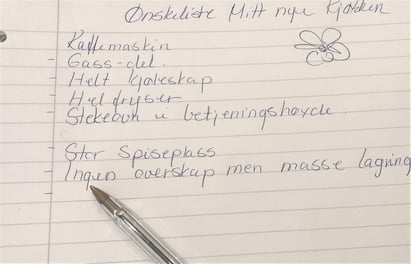 Ønskeliste Mitt nye kjøkken
Kaffemaskin
- Gass-del.
- Helt kjøleskap
- Hel fryser
- Stekeovn i betjeningshøyde.
- Stor Spiseplass
- Ingen overskap men masse lagring
-